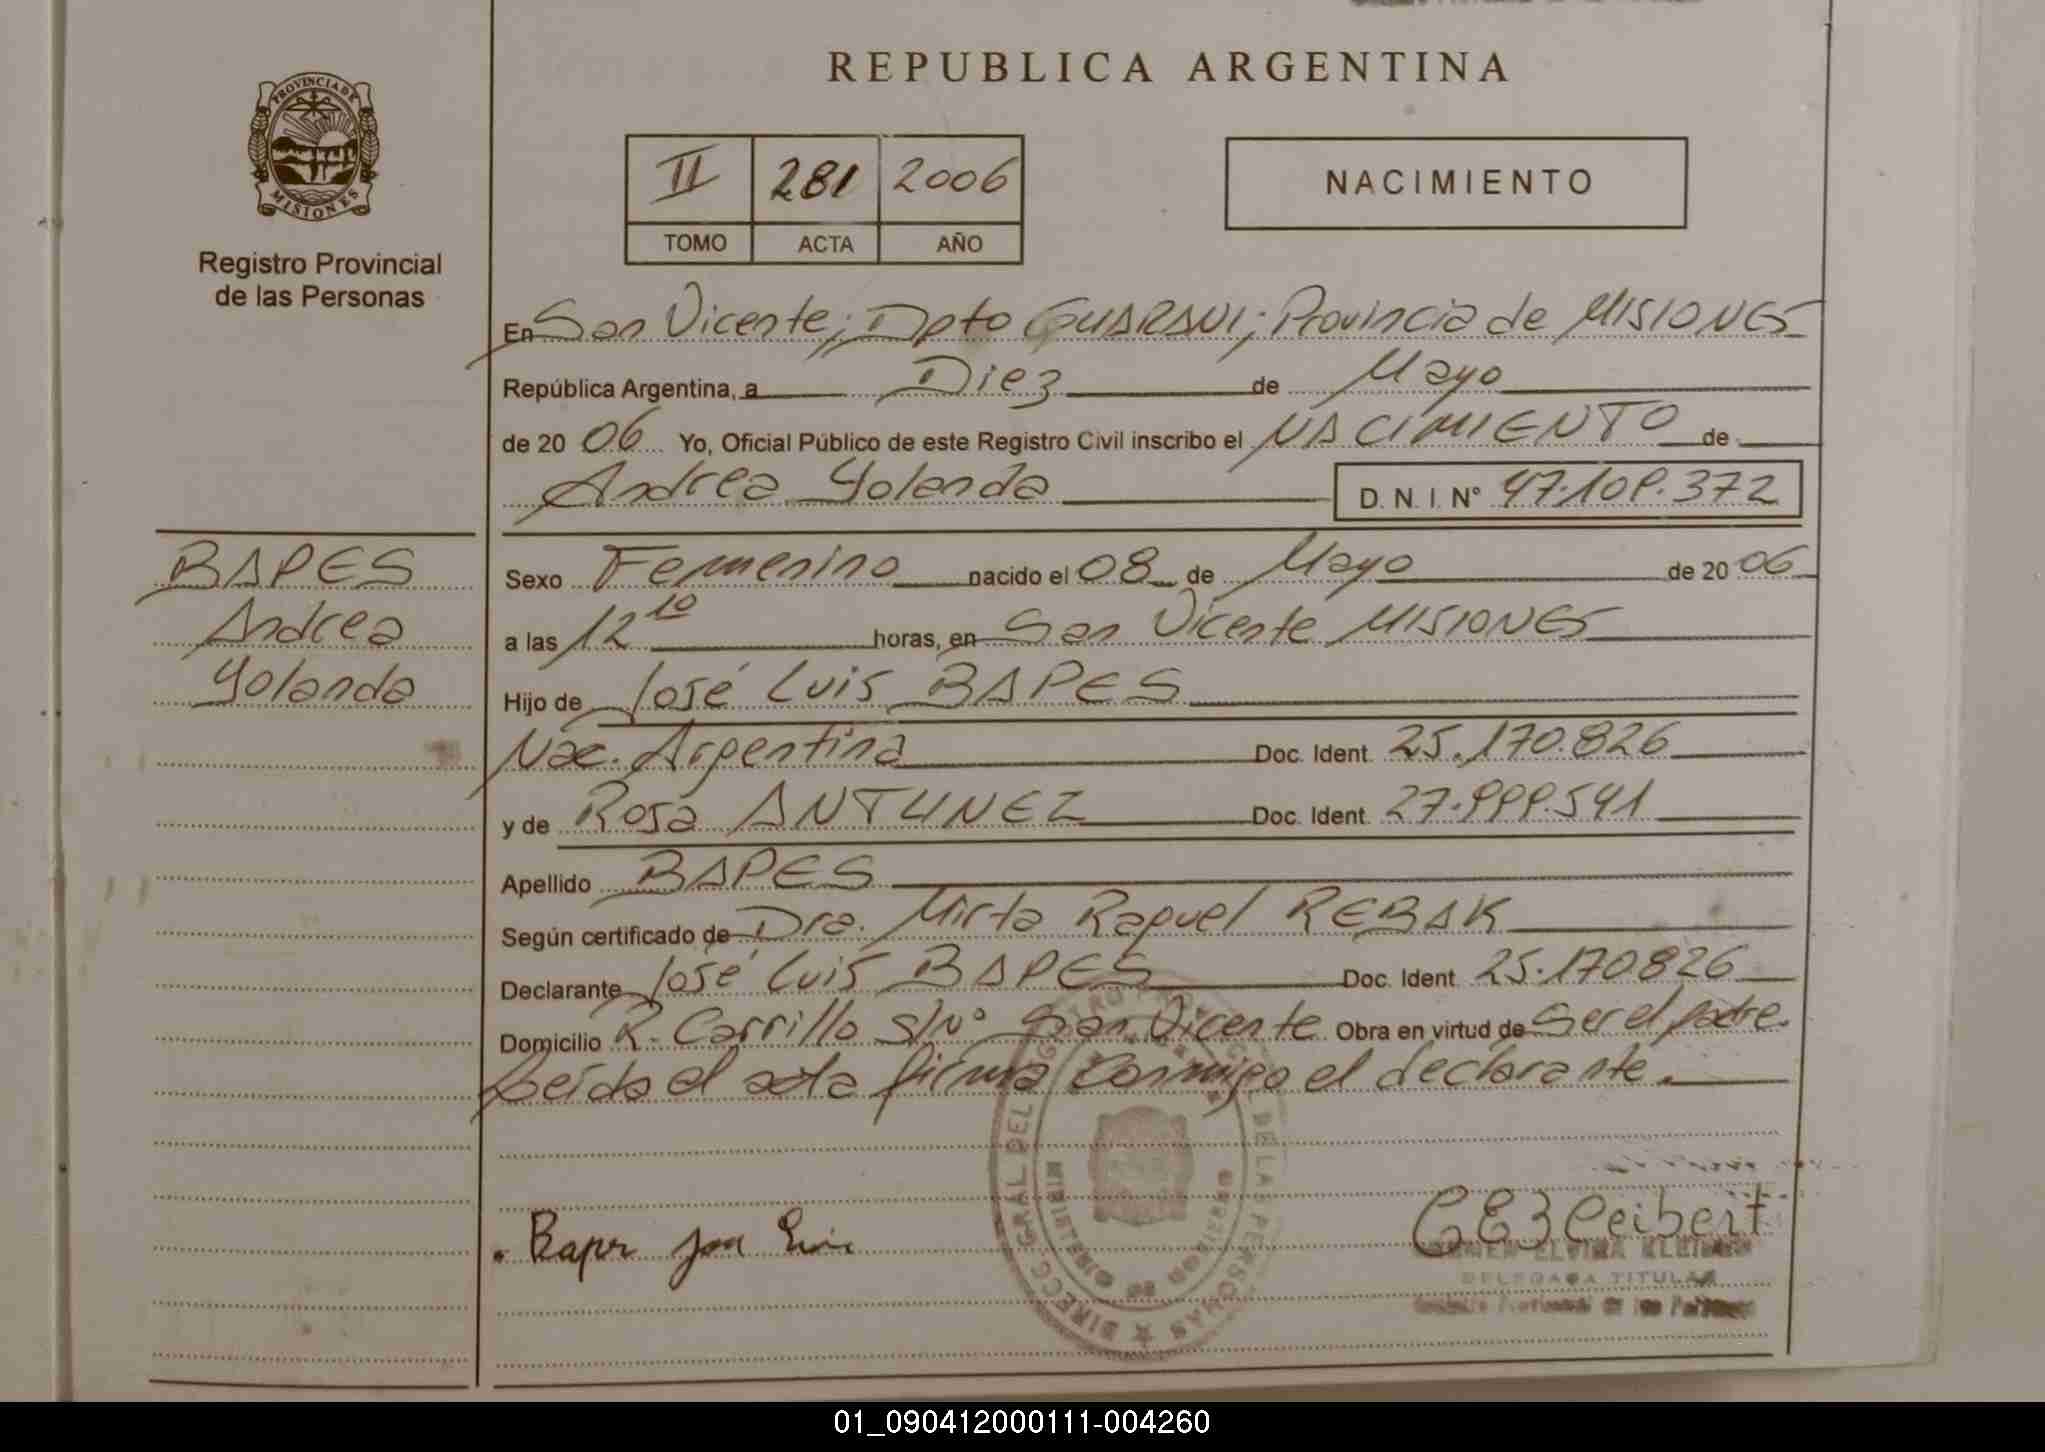 PROVINCIA DE
MISIONES
Registro Provincial
de las Personas
REPUBLICA ARGENTINA
II 281 2006
TOMO ACTA AÑO
NACIMIENTO
En San Vicente; Dpto GUARANI; Provincia de MISIONES
República Argentina, a Diez de Mayo
de 20 06 Yo, Oficial Público de este Registro Civil inscribo el NACIMIENTO de
Andrea Yolanda D.N.I. N° 47.109.372
BAPES
Andrea
Yolanda
Sexo Femenino nacido el 08 de Mayo de 20 06
a las 12 10 horas, en San Vicente MISIONES
Hijo de José Luis BAPES
Nac. Argentina Doc. Ident. 25.170.826
y de Rosa ANTUNEZ Doc. Ident. 27.999.541
Apellido BAPES
Según certificado de Dra. Mirta Raquel REBAK
Declarante José Luis BAPES Doc. Ident. 25.170.826
Domicilio R. Carrillo S/N° San Vicente Obra en virtud de Ser el padre.
Leída el acta firma conmigo el declarante.
DIRECC GRAL DEL REGISTRO PROVINCIAL DE LAS PERSONAS
MINISTERIO DE GOBIERNO
ELVIRA
DELEGADA TITULAR
01_090412000111-004260